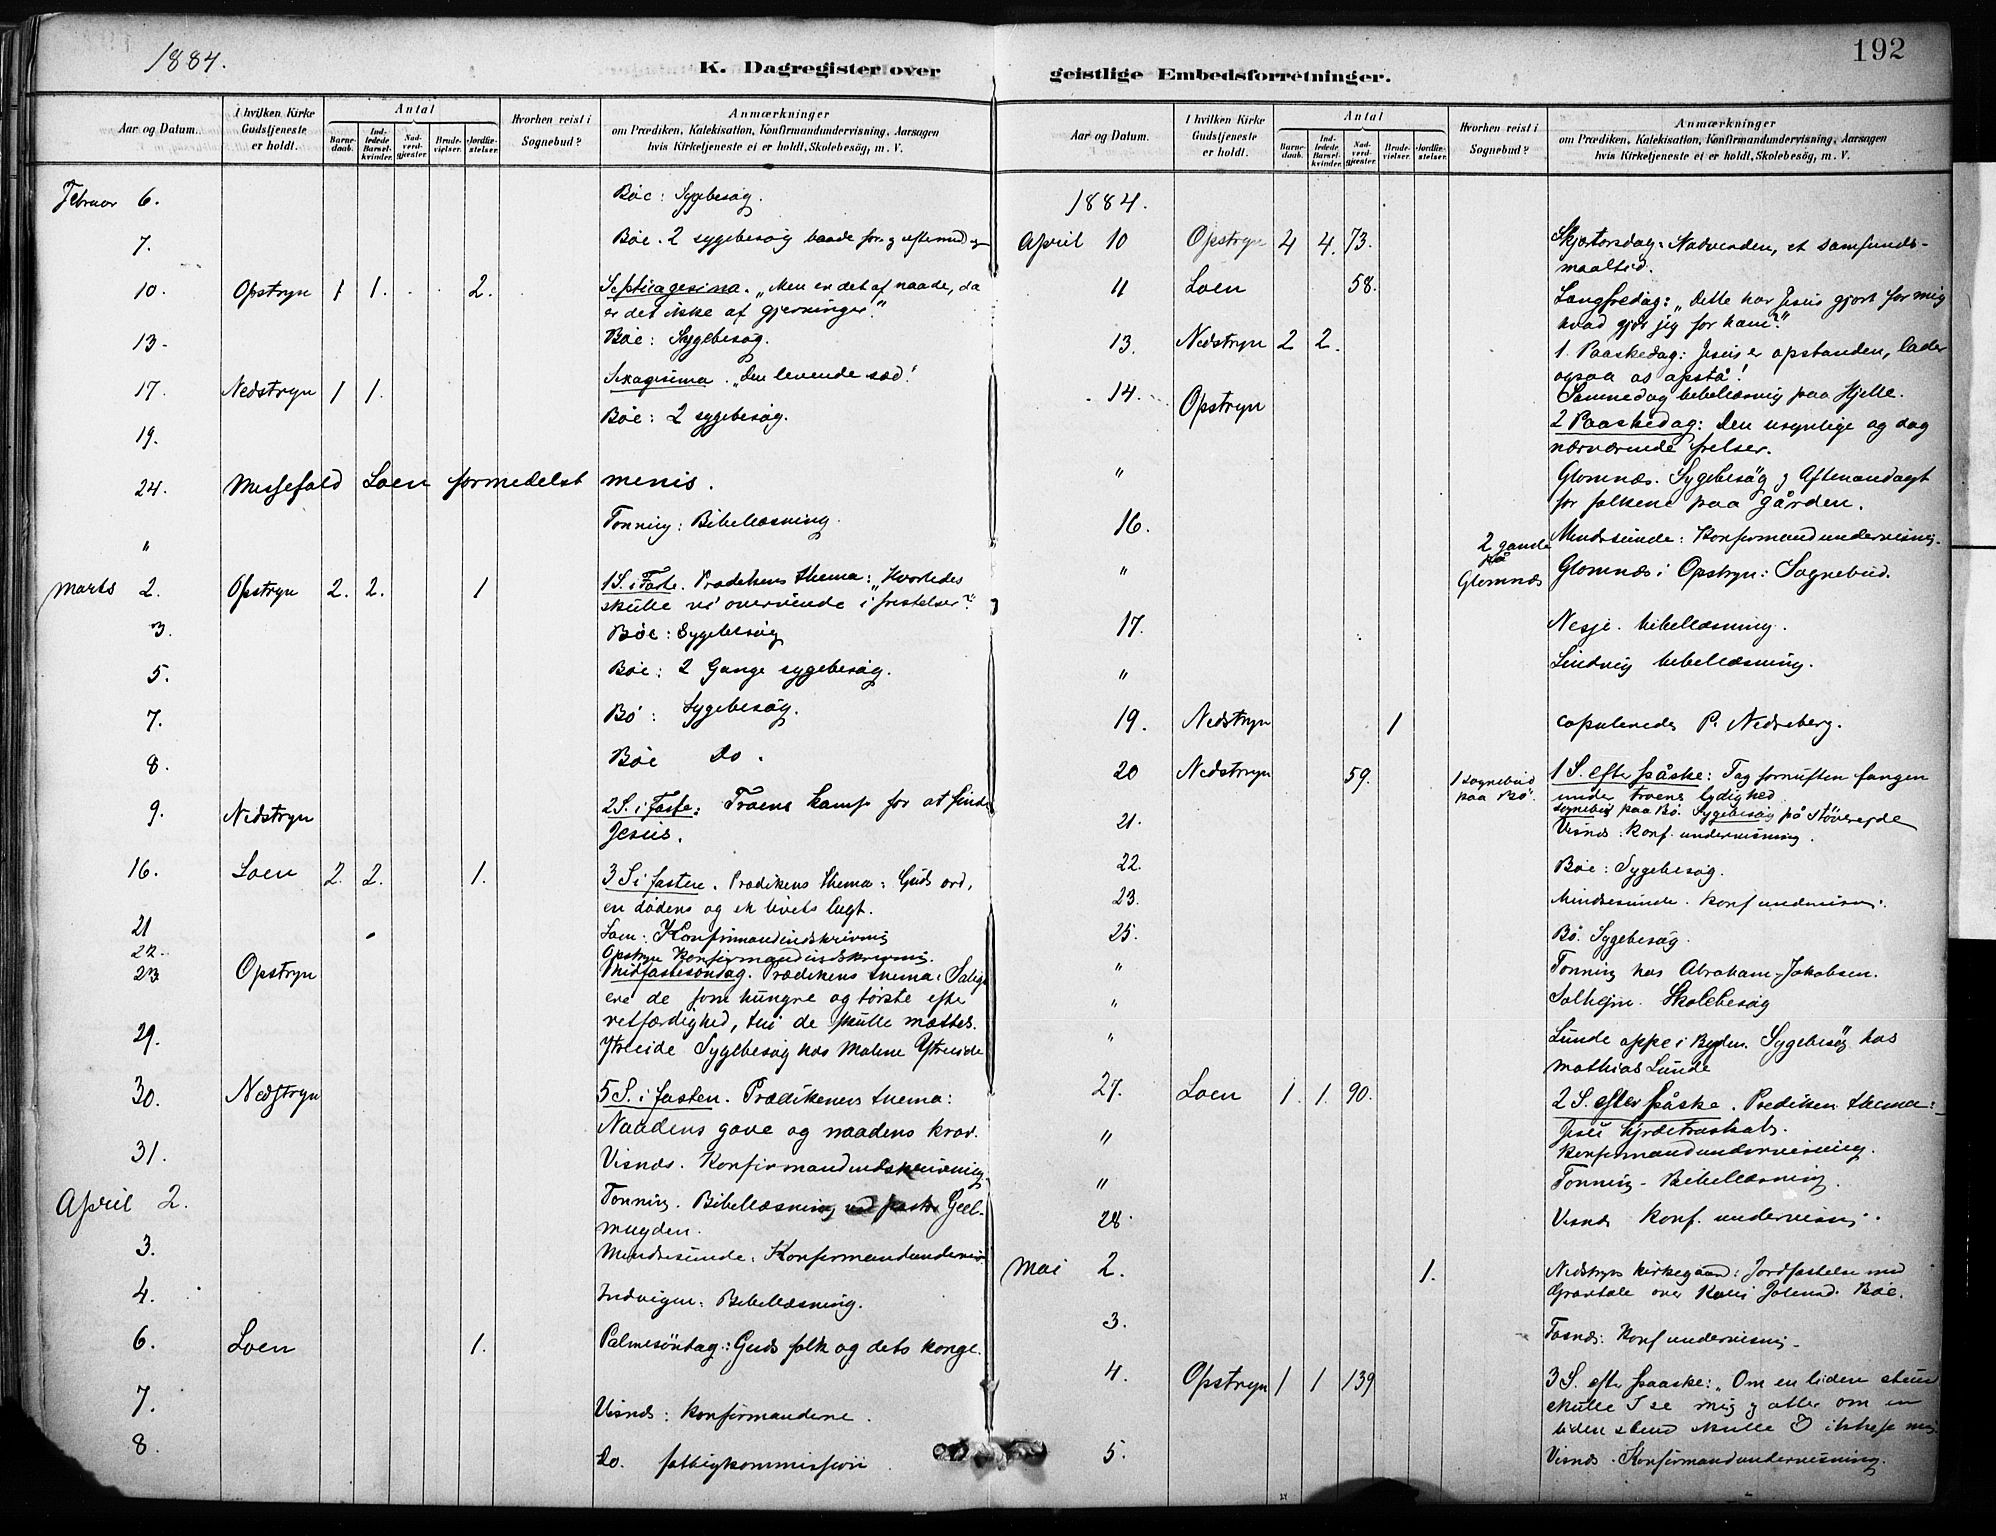 1884.
K. Dagregister over
Aar og Datum.
I hvilken Kirke Gudstjeneste er holdt.
Antal
Barnedaab.
Indledede Barselkvinder.
Nadverdgjester.
Brudevielser.
Jordfæstelser.
Hvorhen reist i Sognebud?
Anmærkninger
om Prædiken, Katekisation, Konfirmandundervisning, Aarsagen
hvis Kirketjeneste ei er holdt, Skolebesög, m. V.
Februar 6. Böe: Sygebesög.
7. Böe. 2 sygebesög baade for. og eftermid
10. Opstryn 1 1. 2. Septuagesima. „Men er det af naade, da
er det ikke af gjerninger."
13. Böe: Sygebesög.
17. Nedstryn 1 1. Sexagesima. „Den levende sæd!
19. Böe: 2 sygebesög.
24. Messefald Loen formedelst menis.
" Tonning: Bibellæsning.
Marts 2. Opstryn 2. 2. 1 1 S. i Faste. Prædikens thema: „Hvorledes
skulle vi overvinde i fristelser?"
3. Böe: Sygebesög
5. Böe: 2 Gange sygebesög.
7. Bö: Sygebesög.
8. Böe Do.
9. Nedstryn 2 S. i Faste: Troens kamp for at finde
Jesus.
16. Loen 2. 2. 1. 3 S i fasten. Prædikens thema: Guds ord,
en dödens og et livets lugt.
21 Loen: Konfirmandindskrivning
22. Opstryn Konfirmandindskrivning.
23 Opstryn Midfastesöndag. Prædikens thema: Salige
ere de som hungre og törste efter
retfærdighed, thi de skulle mættes.
29. Ytreeide Sygebesög hos Malene Ytreeide
30. Nedstryn 5 S. i fasten. Prædikenens thema:
Naadens gave og naadens krav.
31. Visnæs. Konfirmandindskrivning
April 2. Tonning. Bibellæsning ved pastor Geel-
muyden.
3. Mindresunde: Konfirmandundervis.
4. Indvigen: Bibellæsning.
6. Loen 1. Palmesöndag: Guds folk og dets konge.
7. Visnæs: Konfirmanderne.
8. Do. fattigkommission
192
geistlige Embedsforretninger.
Aar og Datum.
I hvilken Kirke Gudstjeneste er holdt.
Antal
Barnedaab.
Indledede Barselkvinder.
Nadverdgjester.
Brudevielser.
Jordfæstelser.
Hvorhen reist i Sognebud?
Anmærkninger
om Prædiken, Katekisation, Konfirmandundervisning, Aarsagen
hvis Kirketjeneste ei er holdt, Skolebesög, m. V.
1884.
April 10 Opstryn 4 4. 73. Skjærtorsdag: Nadverden, et samfunds-
maaltid.
11 Loen 58. Langfredag: „Dette har Jesus gjort for mig
hvad gjör jeg for ham?"
13. Nedstryn 2 2. 1. Paaskedag: Jesus er opstanden, lader
ogsaa os opstå!
Sammedag bibellæsning paa Hjelle.
14. Opstryn 2 Paaskedag: Den usynlige og dog
nærværende frelser.
" Glomnæs. Sygebesög og Aftenandagt
for folkene paa gården.
16. Mindresunde: Konfirmandundervisning.
" 2 gamle på Glomnæs Glomnæs i Opstryn: Sognebud.
17. Nesje. bibellæsning.
" Lindvig bibellæsning.
19. Nedstryn 1 copulerede P. Nedreberg.
20 Nedstryn 59. 1 sognebud paa Bö. 1 S. efter påske: Tag fornuften fangen
under troens lydighed
sognebud paa Bö. Sygebesög på Stöverejde
21. Visnæs: Konf. undervisning.
22. Böe: Sygebesög.
23. Mindresunde. Konfundervisn:
25. Bö. Sygebesög.
" Tonning hos Abraham Jakobsen.
" Solhejm. Skolebesög
" Lunde oppe i Byden. Sygebesög hos
Mathias Lunde
27. Loen 1. 1. 90. 2 S. efter påske. Prediken thema:
Jesu hjordetroskab.
" Konfirmandundervisning.
" Tonning - Bibellæsning.
28. Visnæs Konf. undervisning.
Mai 2. 1. Nedstryns kirkegaard: Jordfæstelse med
Gravtale over Böe.
3. Tosnæs: Konf undervisning.
4. Opstryn 1 1 139 3 S. efter paaske: „Om en liden stund
skulle I se mig og atter om en
liden stund skulle I ikke se mig
5. Visnæs. Konfirmandundervisning.